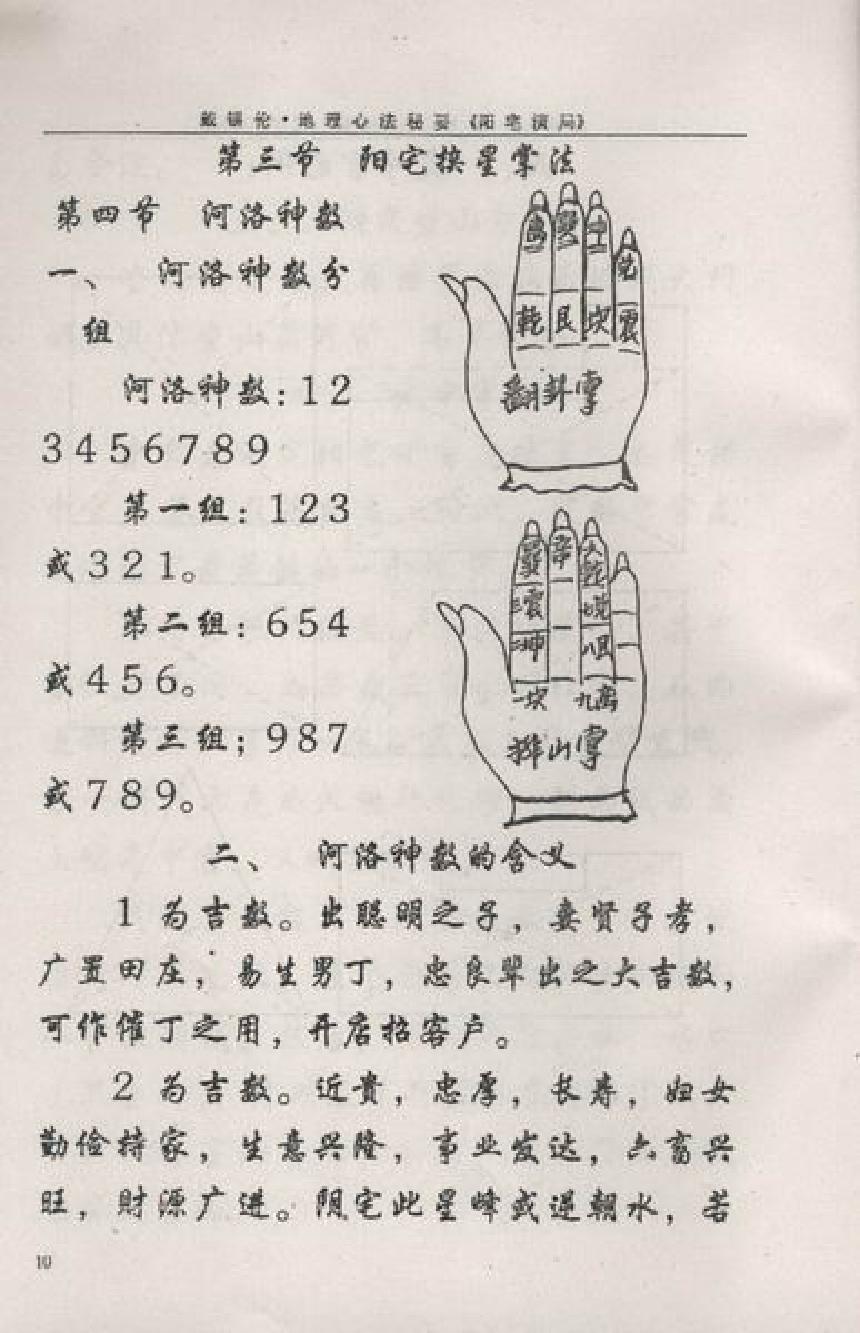 戴锡伦·地理心法秘要《阳宅演局》
第三节 阳宅换星掌法
第四节 河洛神数
一、 河洛神数分
组
河洛神数:12
3456789
第一组:123
或321。
第二组:654
或456。
第三组;987
或789。
離 巽 中 兑
乾 艮 坎 震
翻卦掌
四巽 五中 六乾
三震 七兑
二坤 八艮
一坎 九离
排山掌
二、 河洛神数的含义
1 为吉数。出聪明之子,妻贤子孝,
广置田庄,易生男丁,忠良辈出之大吉数,
可作催丁之用,开店招客户。
2 为吉数。近貴,忠厚,长寿,妇女
勤俭持家,生意兴隆,事业发达,六畜兴
旺,财源广进。阴宅此星峰或逆朝水,若
10